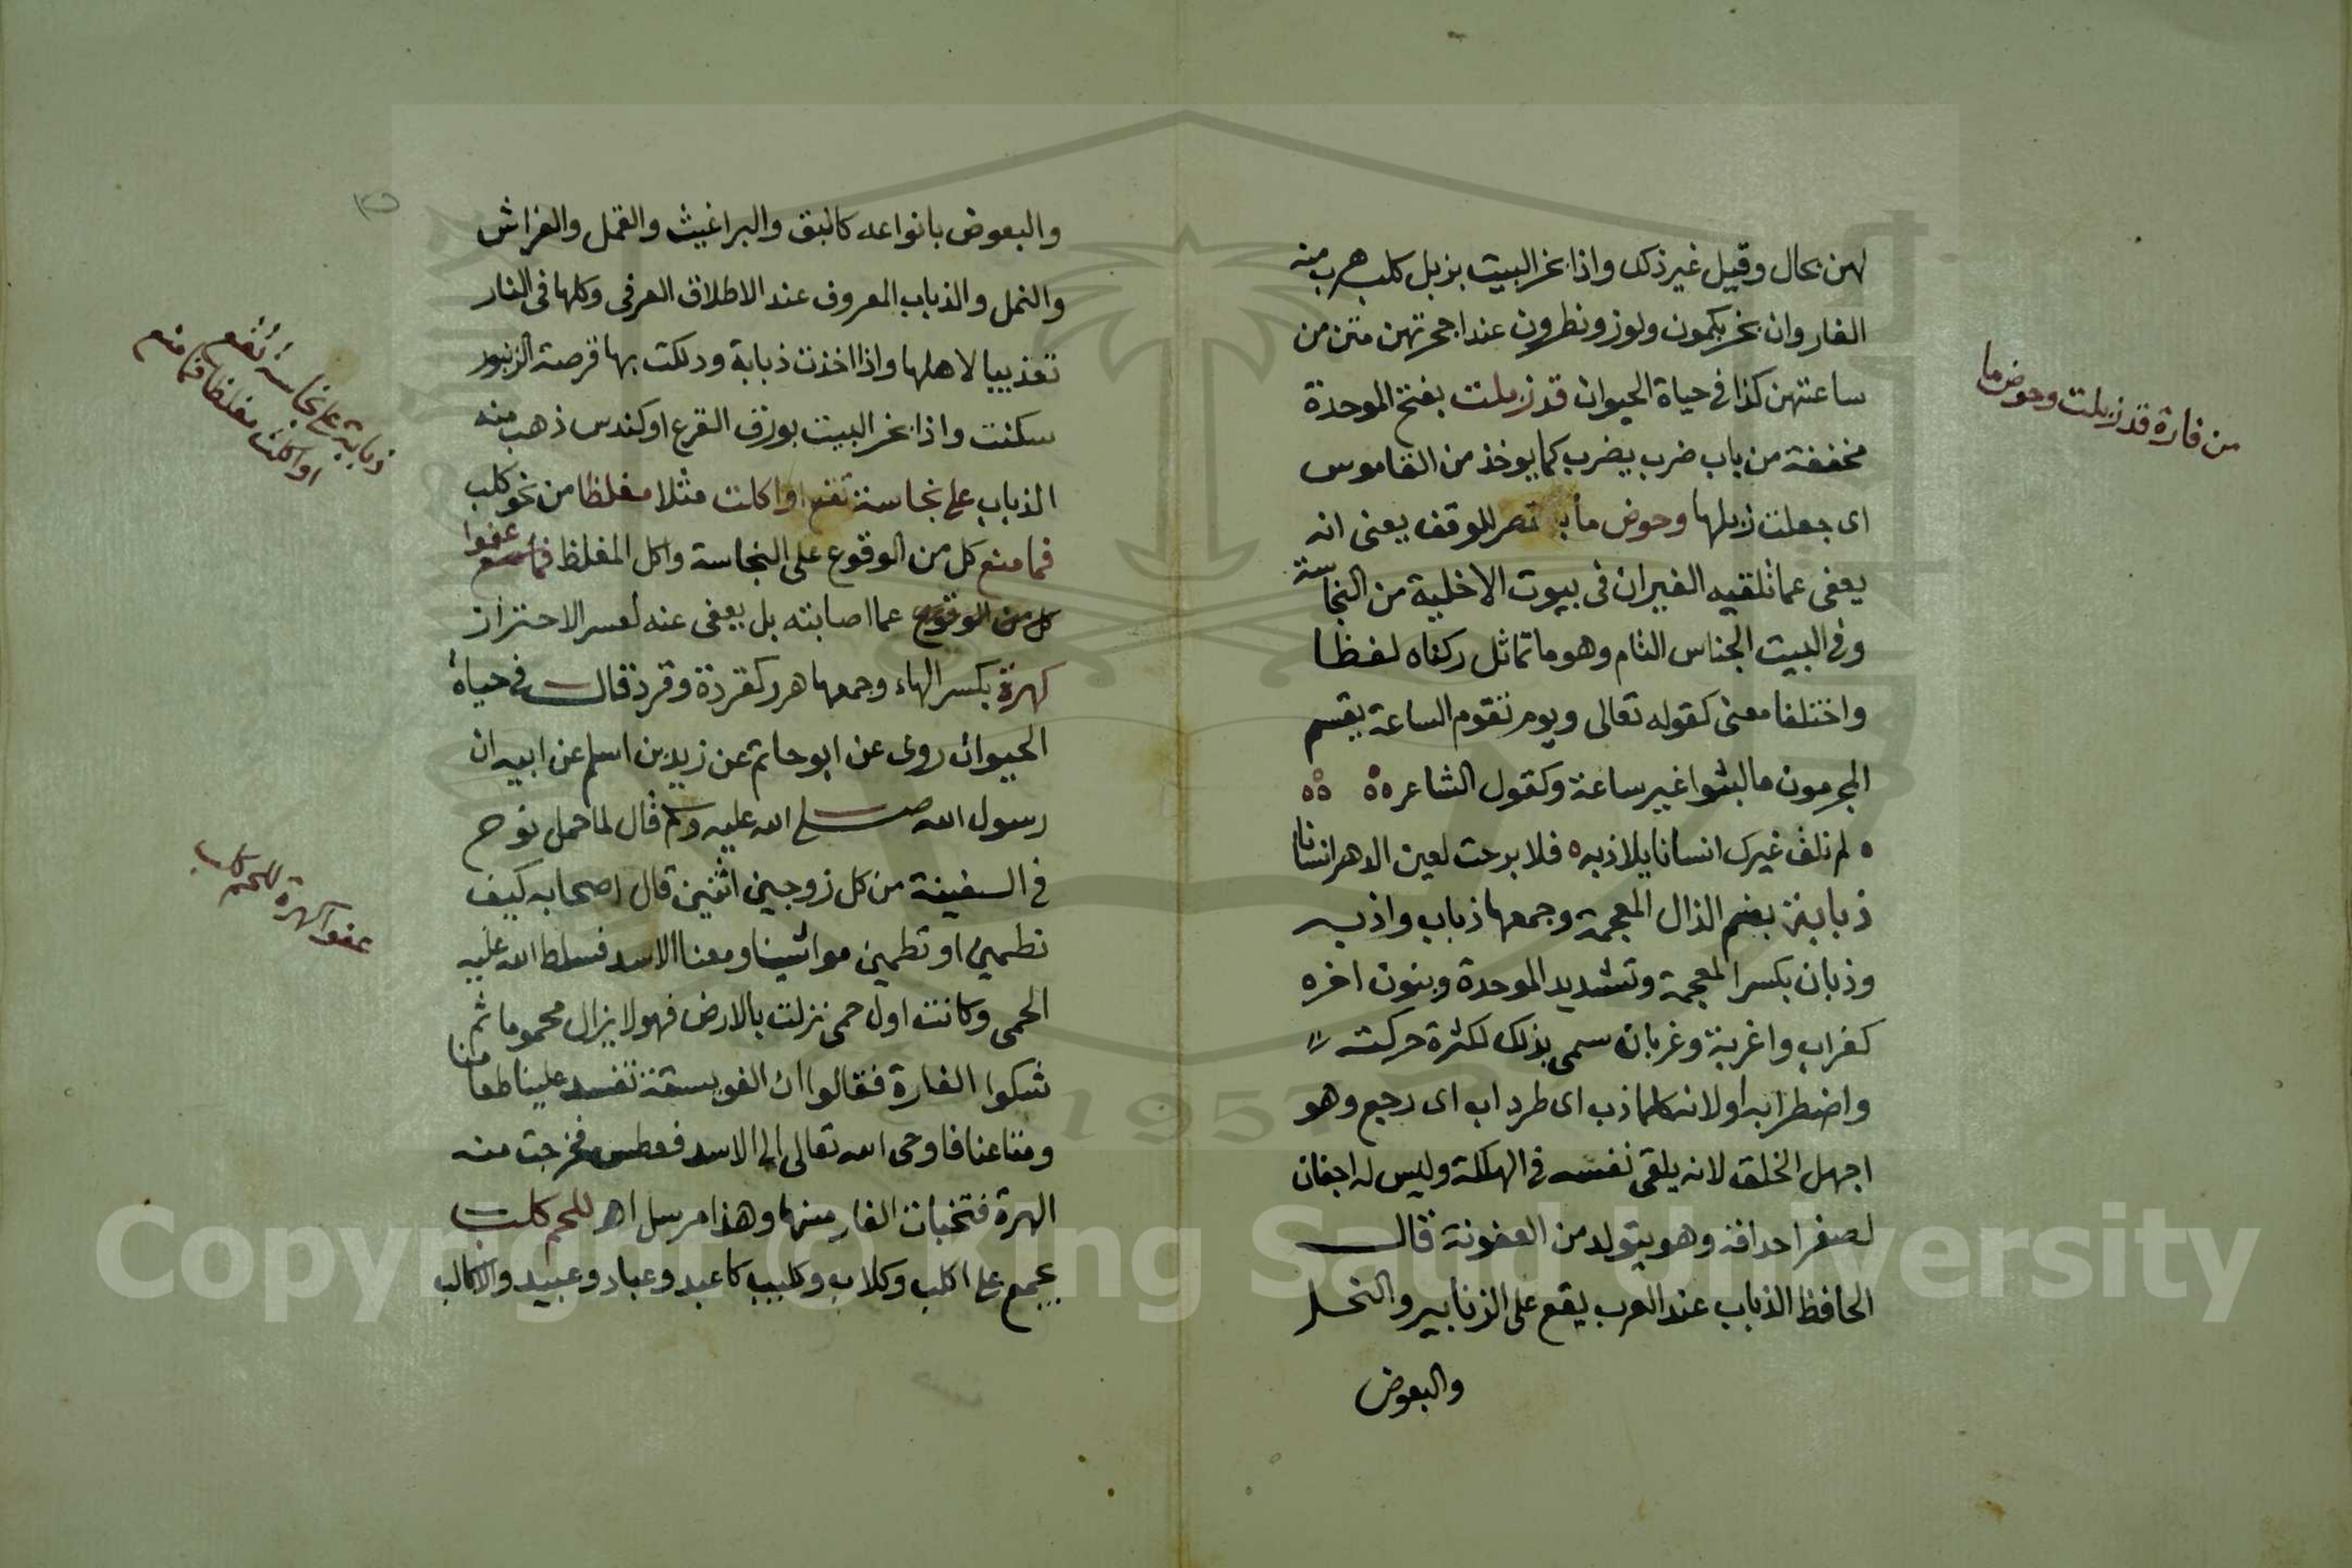 لهن بحال وقيل غير ذلك واذا بخر البيت بزبل كلب هرب منه
الفار وان بخر بكمون ولوز ونطرون عند اجحرتهن متن من
ساعتهن كذا في حياة الحيوان قد زبلت بفتح الموحدة
مخففة من باب ضرب يضرب كما يوخذ من القاموس
اى جعلت زبلها وحوض ما للوقف يعنى انه
يعفى عما تلقيه الفيران فى بيوت الاخلية من النجاسة
وفى البيت الجناس التام وهو ما تماثل ركناه لفظا
واختلفا معنى كقوله تعالى ويوم تقوم الساعة يقسم
المجرمون ما لبثوا غير ساعة وكقول الشاعر
لم نلف غيرك انسانا يلاذ به فلا برحت لعين الدهر انسانا
ذبابة بضم الذال المعجمة وجمعها ذباب واذب
وذبان بكسر المعجمة وتشديد الموحدة وبنون اخره
كغراب واغربة وغربان سمى بذلك لكثرة حركته
واضطرابه او لانه كلما ذب اى طرد اب اى رجع وهو
اجهل الخلق لانه يلقى نفسه في الهلكة وليس له اجفان
لصغر احداقه وهو يتولد من العفونة قال
الحافظ الذباب عند العرب يقع على الزنابير والنحل
والبعوض
من فارة قد زبلت وحوض ما
والبعوض بانواعه كالبق والبراغيث والقمل والفراش
والنمل والذباب المعروف عند الاطلاق العرفى وكلها فى النار
تعذيبا لاهلها واذا اخذت ذبابة ودلكت بها قرصة الزنبور
سكنت واذا بخر البيت بورق القرع او كندس ذهب منه
الذباب على نجاسة تقع او اكلت مثلا مغلظا من نحو كلب
فما منع كل من الوقوع على النجاسة واكل المغلظ فما منع عفوا
كل من الوقوع عما اصابته بل يعفى عنه لعسر الاحتراز
كهرة بكسر الهاء وجمعها هرر كقردة وقرد قال في حياة
الحيوان روى عن ابو حاتم عن زيد بن اسلم عن ابيه ان
رسول الله صلى الله عليه وسلم قال لما حمل نوح
في السفينة من كل زوجين اثنين قال اصحابه كيف
نطمين او تطمين مواشينا ومعنا الاسد فسلط الله عليه
الحمى وكانت اول حمى نزلت بالارض فهو لا يزال محموما ثم
شكوا الفارة فقالوا ان الفويسقة تفسد علينا طعامنا
ومتاعنا فاوحى الله تعالى الى الاسد فعطس فخرجت منه
الهرة فتخبات الفار منها وهذا مرسل اهـ للحم كلب
يجمع على اكلب وكلاب وكليب كاعبد وعباد وعبيد والاكالب
ذبابة على نجاسة تقع
او اكلت مغلظا فما منع
عفوا كهرة للحم كلب